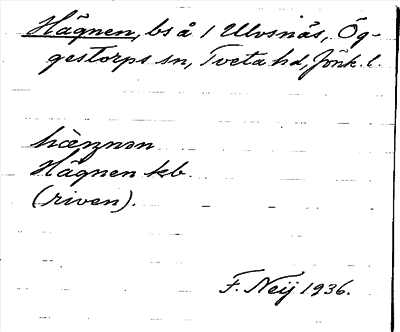 Hägnen, bs å 1 Ulvsnäs, Ög-
gestorps sn, Tveta hd, Jönk. l.
hæŋnən
Hägnen kb.
(riven).
F. Neij 1936.